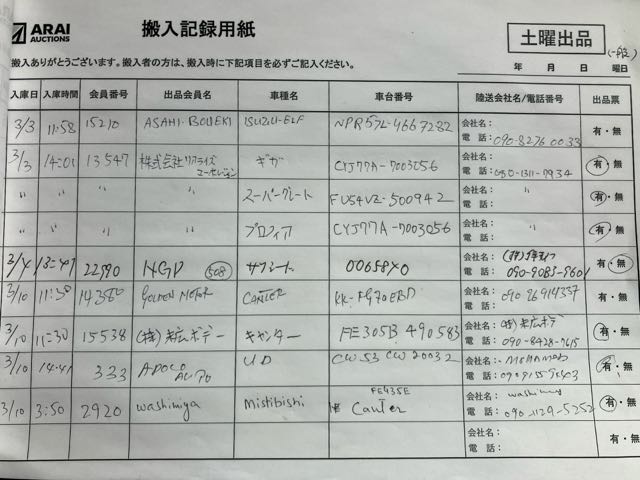 ARAI
AUCTIONS
搬入記録用紙
土曜出品
(一般)
搬入ありがとうございます。搬入者の方は、搬入時に下記項目を必ずご記入ください。
年 月 日 曜日
入庫日 入庫時間 会員番号 出品会員名 車種名 車台番号 陸送会社名/電話番号 出品票
3/3 11:58 15210 ASAHI-BOUEKI ISUZU-ELF NPR57L-4667232 会社名: 有・無
電話: 090-8276 0033
3/3 14:01 13547 株式会社リアライズ ギガ CYJ77A-7003056 会社名: 有・無
電話: 080-1311-7934
〃 〃 〃 スーパーグレート FU54VZ-500942 会社名: 〃 有・無
電話:
〃 〃 〃 プロフィア CYJ77A-7003056 会社名: 〃 有・無
電話:
3/4 13:47 22590 NGP 508 会社名: 有・無
電話: 090-9083-9601
3/10 11:30 14380 GOLDEN MOTOR CANTER KK-FG70EBD 会社名: 090 26914337 有・無
電話:
3/10 11:30 15538 (株)末広ボデー キャンター FE305B 490583 会社名: (株)末広ボデー 有・無
電話: 090-8428-7615
3/10 14:41 333 APOLO UD CW53 CW20032 会社名: 有・無
電話:
3/10 3:50 2920 washimiya Mistibishi FE435E Canter 会社名: washimiya 有・無
電話: 090-1129-5252
会社名: 有・無
電話: